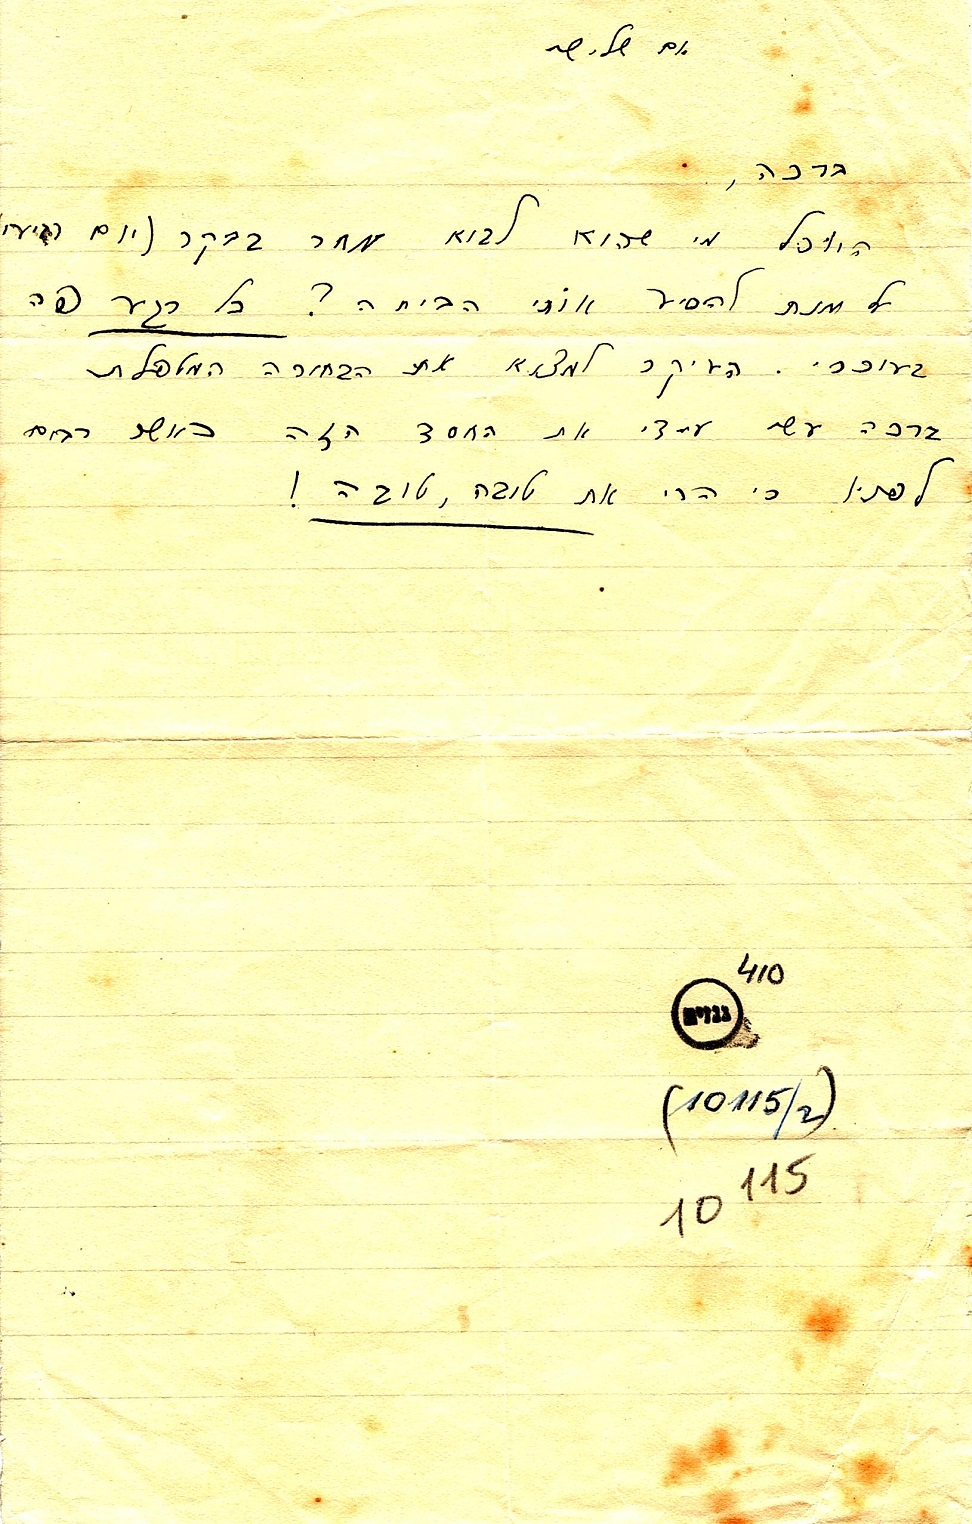 יום שלישי
ברכה,
היוכל מי שהוא לבוא מחר בבקר (יום רביעי)
על מנת להסיע אותי הביתה? כל רגע פה
בעוכרי. העיקר למצוא את הבחורה המטפלת.
ברכה עשי עמדי את החסד הזה כאשר רבים
לפניו כי הרי את טובה, טובה!
410
גנזים
(10115/2)
10 115